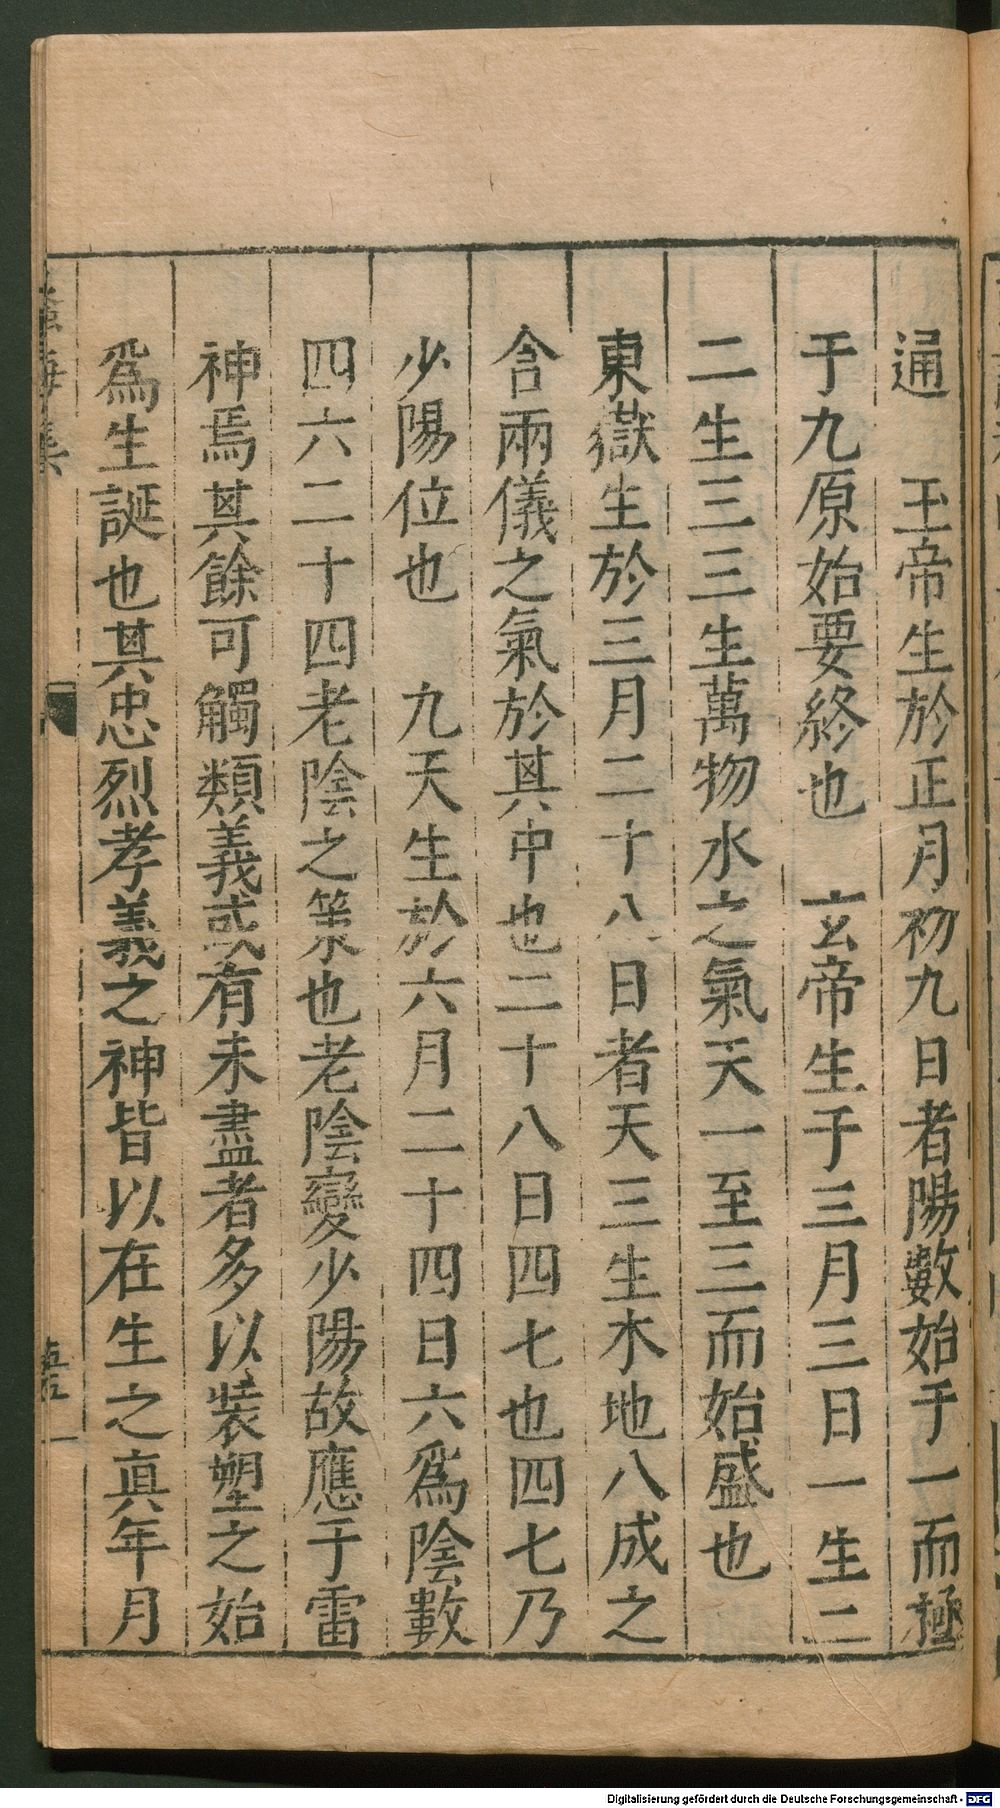 通　玉帝生於正月初九日者陽數始于一而極
于九原始要終也　玄帝生于三月三日一生二
二生三三生萬物水之氣天一至三而始盛也
東嶽生於三月二十八日者天三生木地八成之
含兩儀之氣於其中也二十八日四七也四七乃
少陽位也　九天生於六月二十四日六爲陰數
四六二十四老陰之策也老陰變少陽故應于雷
神焉其餘可觸類義或有未盡者多以装塑之始
爲生誕也其忠烈孝義之神皆以在生之真年月
海集
Digitalisierung gefördert durch die Deutsche Forschungsgemeinschaft - DFG